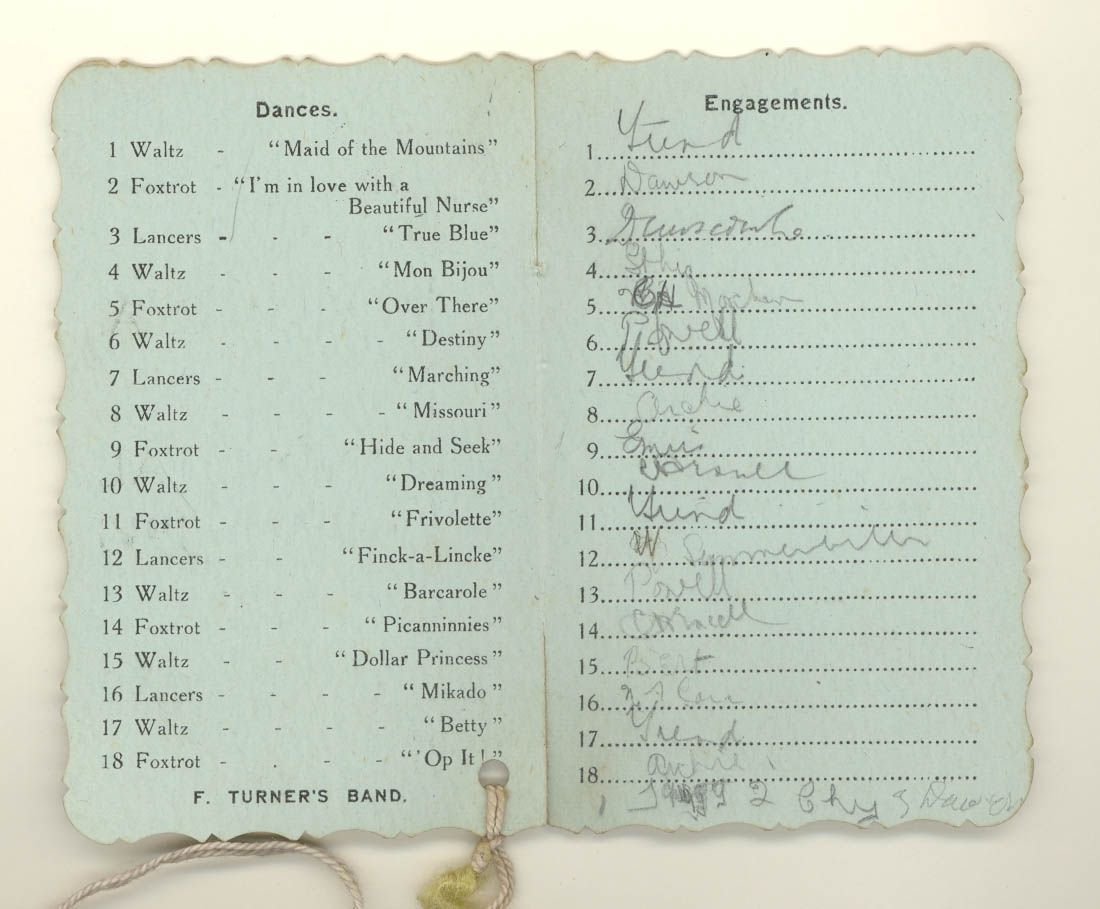 Dances.
1 Waltz - "Maid of the Mountains"
2 Foxtrot - "I'm in love with a
Beautiful Nurse"
3 Lancers - - - "True Blue"
4 Waltz - - - "Mon Bijou"
5 Foxtrot - - "Over There"
6 Waltz - - - "Destiny"
7 Lancers - - - "Marching"
8 Waltz - - - - "Missouri"
9 Foxtrot - - "Hide and Seek"
10 Waltz - - - "Dreaming"
11 Foxtrot - - - "Frivolette"
12 Lancers - - "Finck-a-Lincke"
13 Waltz - - - "Barcarole"
14 Foxtrot - - - "Picanninnies"
15 Waltz - - "Dollar Princess"
16 Lancers - - - - "Mikado"
17 Waltz - - - - "Betty"
18 Foxtrot - . - - "'Op It!"
F. TURNER'S BAND.
Engagements.
1
2 Dawson
3
4
5
6 Powell
7
8 Archie
9
10
11
12 W
13 Powell
14
15 Bert
16
17
18 Archie
2 3